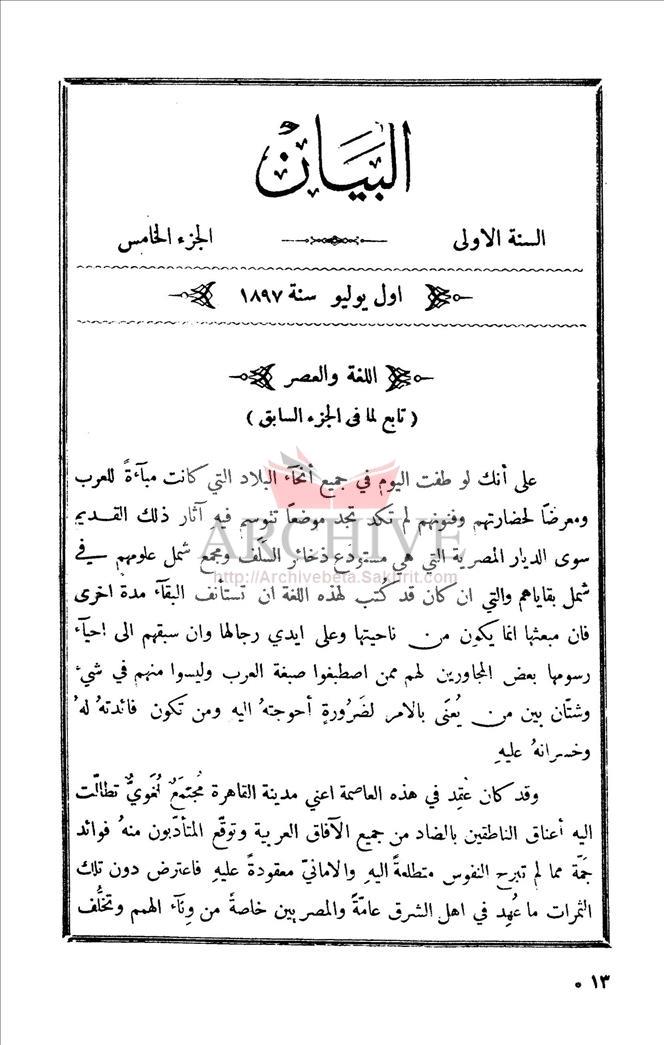 البَيَان
السنة الاولى
الجزء الخامس
اول يوليو سنة ١٨٩٧
اللغة والعصر
( تابع لما في الجزء السابق )
على أنك لو طفت اليوم في جميع أنحآء البلاد التي كانت مبآءةً للعرب
ومعرضًا لحضارتهم وفنونهم لم تكد تجد موضعًا تتوسم فيه آثار ذلك القديم
سوى الديار المصرية التي هي مستودع ذخائر السلف ومجمع شمل علومهم في
شمل بقاياهم والتي ان كان قد كُتب لهذه اللغة ان تستأنف البقآء مدة اخرى
فان مبعثها انما يكون من ناحيتها وعلى ايدي رجالها وان سبقهم الى احيآء
رسومها بعض المجاورين لهم ممن اصطبغوا صبغة العرب وليسوا منهم في شيء
وشتّان بين من يُعنَى بالامر لضَرُورةٍ أحوجتهُ اليه ومن تكون فائدتهُ لهُ
وخسرانهُ عليهِ
وقد كان عُقِد في هذه العاصمة اعني مدينة القاهرة مُجتمَعٌ لُغَويٌّ تطالّت
اليه أعناق الناطقين بالضاد من جميع الآفاق العربية وتوقّع المتأدّبون منهُ فوائد
جمّة مما لم تبرح النفوس متطلعةً اليهِ والامانيّ معقودةً عليهِ فاعترض دون تلك
الثمرات ما عُهِد في اهل الشرق عامّةً والمصريين خاصةً من وِنآء الهمم وتخلُّف
١٣
ARCHIVE
http://Archivebeta.Sakhrit.com